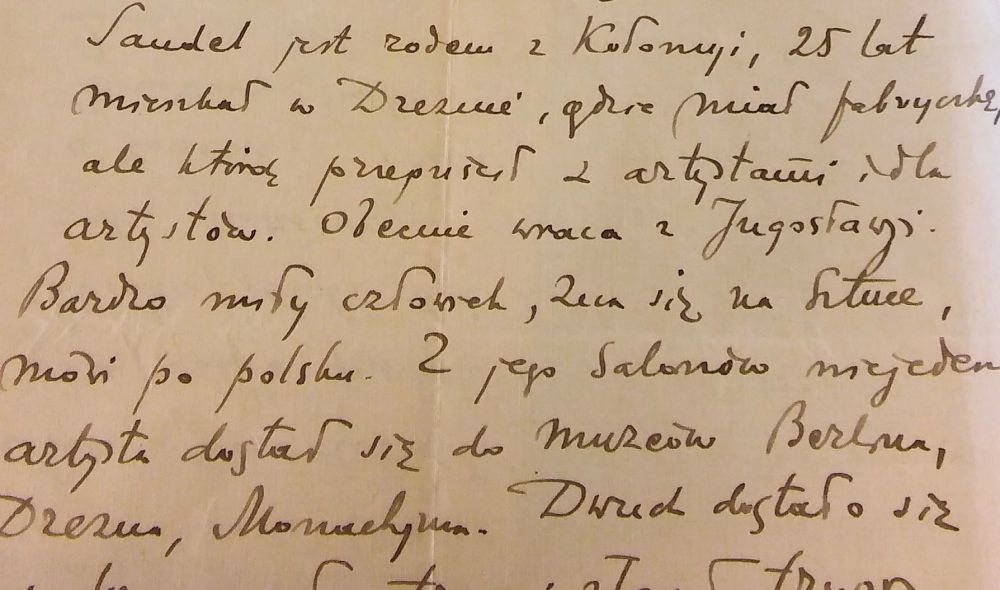 Sandel jest rodem z Kołomyji, 25 lat
mieszkał w Dreźnie, gdzie miał fabryczkę,
ale którą przepuścił z artystami i dla
artystów. Obecnie wraca z Jugosławji.
Bardzo miły człowiek, zna się na sztuce,
mówi po polsku. Z jego salonów niejeden
artysta dostał się do muzeów Berlina,
Drezna, Monachjum. Dwuch dostało się